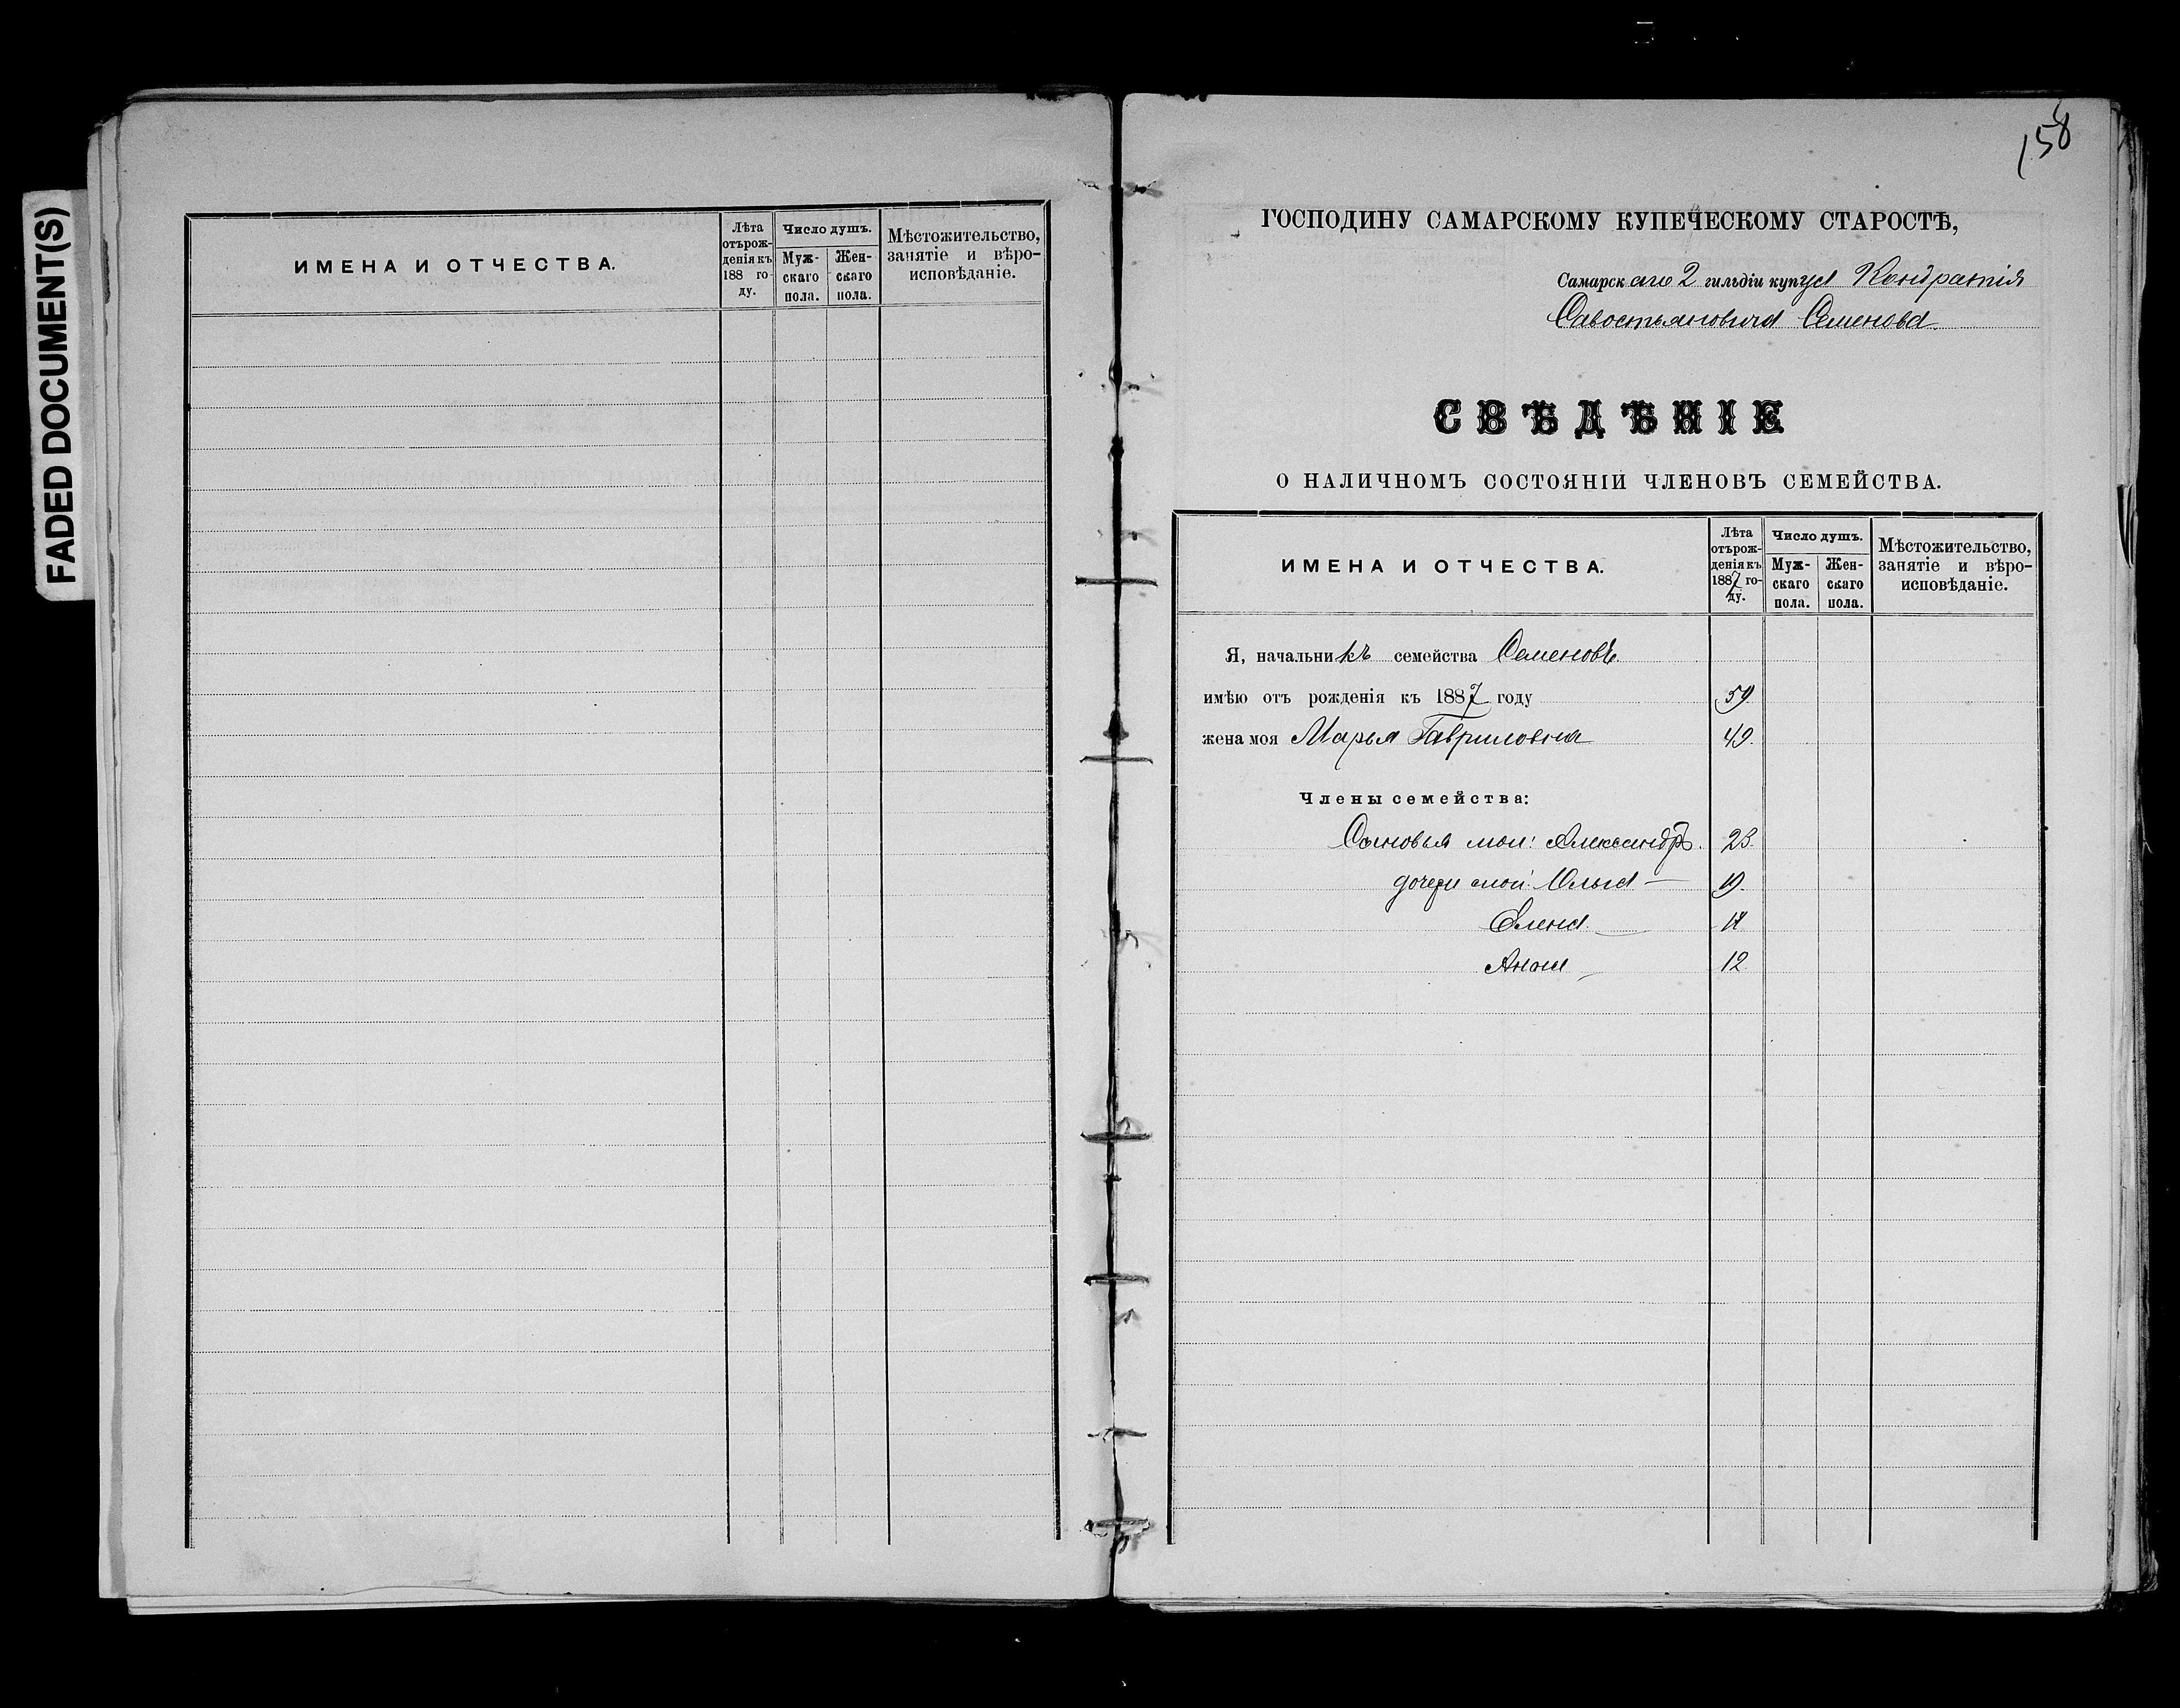 FADED DOCUMENT(S)
ИМЕНА И ОТЧЕСТВА.
Лѣта отъ рожденія къ 188 году.
Число душъ.
Мужскаго пола.
Женскаго пола.
Мѣстожительство, занятіе и вѣроисповѣданіе.
158
ГОСПОДИНУ САМАРСКОМУ КУПЕЧЕСКОМУ СТАРОСТѢ,
Самарскаго 2 гильдіи купца Кондратія
Савостьяновича Семенова
СВѢДѢНІЕ
О НАЛИЧНОМЪ СОСТОЯНІИ ЧЛЕНОВЪ СЕМЕЙСТВА.
ИМЕНА И ОТЧЕСТВА.
Лѣта отъ рожденія къ 1887 году.
Число душъ.
Мужскаго пола.
Женскаго пола.
Мѣстожительство, занятіе и вѣроисповѣданіе.
Я, начальникъ семейства Семеновъ
имѣю отъ рожденія къ 1887 году 59
жена моя Марья Гавриловна 49.
Члены семейства:
Сыновья мои: Александръ. 23.
дочери мои: Ольга — 19.
Елена. —
Анна — 12